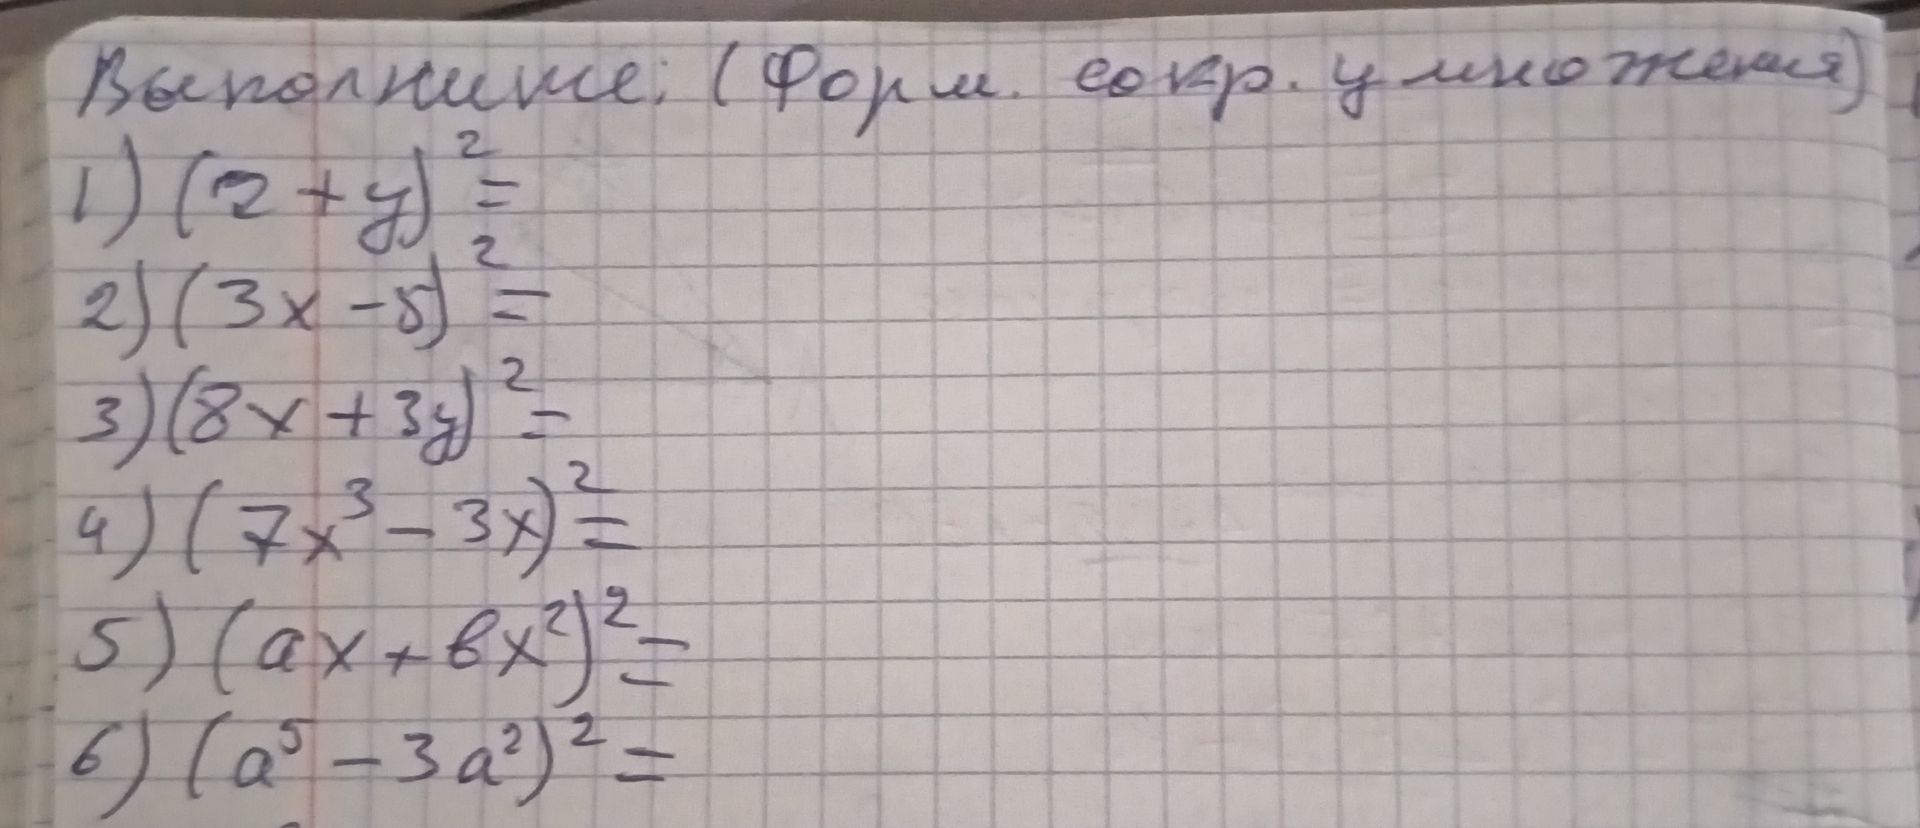 Выполните: (Форм. сокр. умножения)
1) (2 + y)² =
2) (3x - 5)² =
3) (8x + 3y)² =
4) (7x³ - 3x)² =
5) (ax + bx²)² =
6) (a⁵ - 3a²)² =